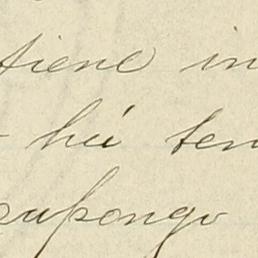 tiene in
há ten
supongo